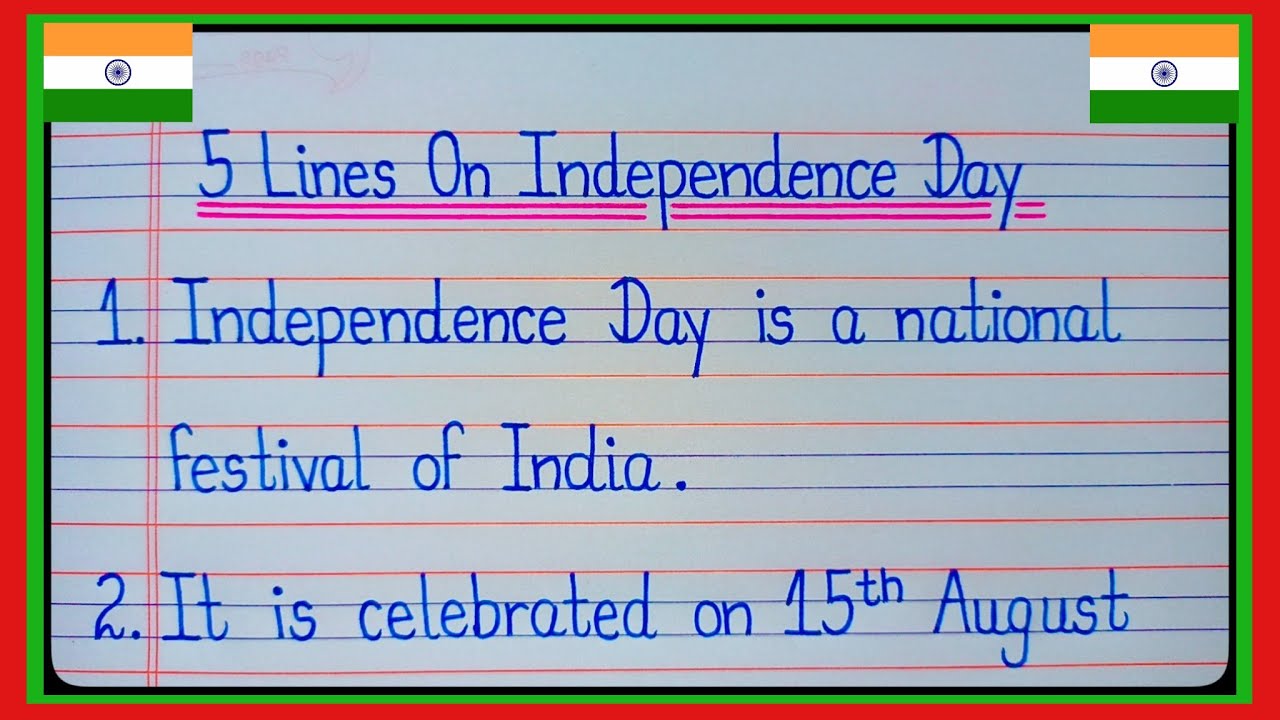 5 Lines On Independence Day
1. Independence Day is a national
festival of India.
2. It is celebrated on 15th August